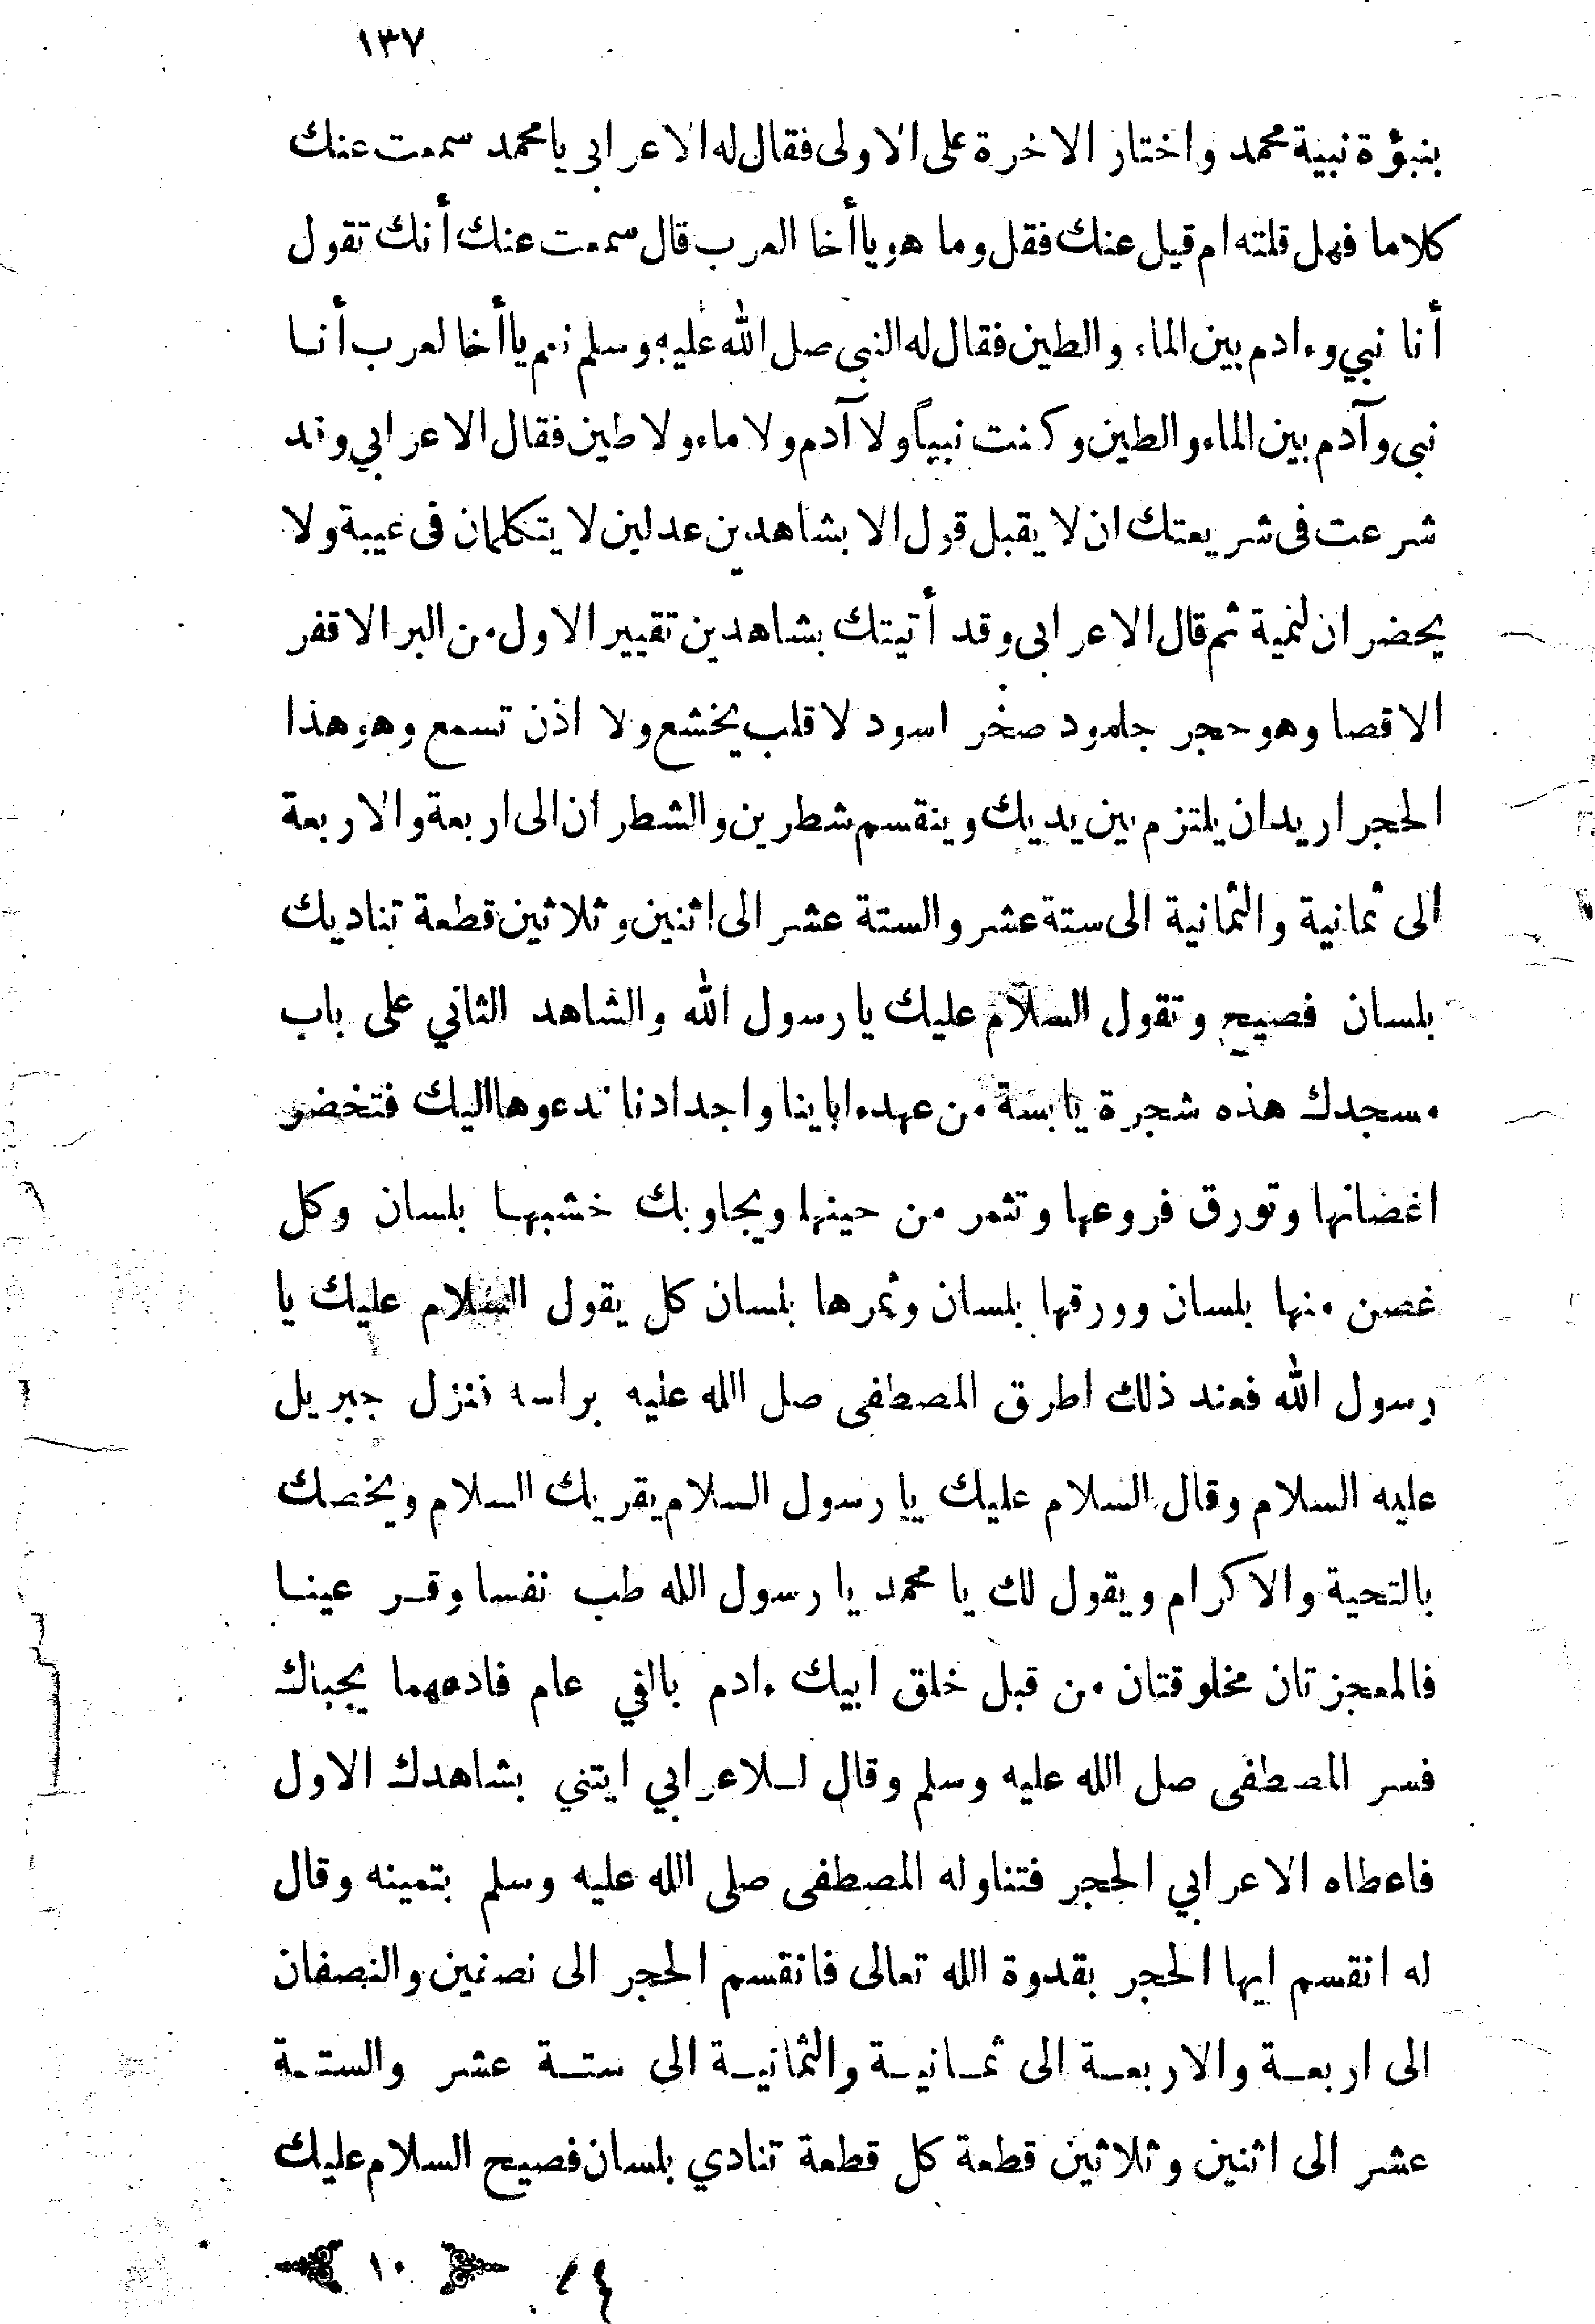 ١٣٧
بنبؤة نبية محمد واختار الاخرة على الاولى فقال له الاعرابي يا محمد سمعت عنك
كلاما فهل قلته ام قيل عنك فقل وما هو يا أخا العرب قال سمعت عنك أنك تقول
أنا نبي وءادم بين الماء والطين فقال له النبى صل الله عليه وسلم نعم يا أخا لعرب أنا
نبى وآدم بين الماء والطين وكنت نبياً ولا آدم ولا ماء ولا طين فقال الاعرابي وقد
شرعت فى شريعتك ان لا يقبل قول الا بشاهدين عدلين لا يتكلمان فى غيبة ولا
يحضران لنمية ثم قال الاعرابى وقد أتيتك بشاهدين تقيير الاول من البر الاقفر
الاقصا وهو حجر جلمود صخر اسود لا قلب يخشع ولا اذن تسمع وهو هذا
الحجر اريد ان يلتزم بين يديك وينقسم شطرين والشطران الى اربعة والاربعة
الى ثمانية والثمانية الى ستة عشر والستة عشر الى اثنين وثلاثين قطعة تناديك
بلسان فصيح وتقول السلام عليك يا رسول الله والشاهد الثاني على باب
مسجدك هذه شجرة يابسة من عهد ءاباينا واجدادنا ندعوها اليك فتخضر
اغضانها وتورق فروعها وتثمر من حينها ويجاوبك خشبها بلسان وكل
غصن منها بلسان وورقها بلسان وثمرها بلسان كل يقول السلام عليك يا
رسول الله فعند ذلك اطرق المصطفى صل الله عليه براسه فنزل جبريل
عليه السلام وقال السلام عليك يا رسول السلام يقريك السلام ويخصك
بالتحية والاكرام ويقول لك يا محمد يا رسول الله طب نفسا وقر عينا
فالمعجزتان مخلوقتان من قبل خلق ابيك ءادم بالفي عام فادعهما يجباك
فسر المصطفى صل الله عليه وسلم وقال للاعرابي ايتني بشاهدك الاول
فاعطاه الاعرابي الحجر فتناوله المصطفى صلى الله عليه وسلم بتمينه وقال
له انقسم ايها الحجر بقدوة الله تعالى فانقسم الحجر الى نصفين والنصفان
الى اربعة والاربعة الى ثمانية والثمانية الى ستة عشر والستة
عشر الى اثنين وثلاثين قطعة كل قطعة تنادي بلسان فصيح السلام عليك
١٠